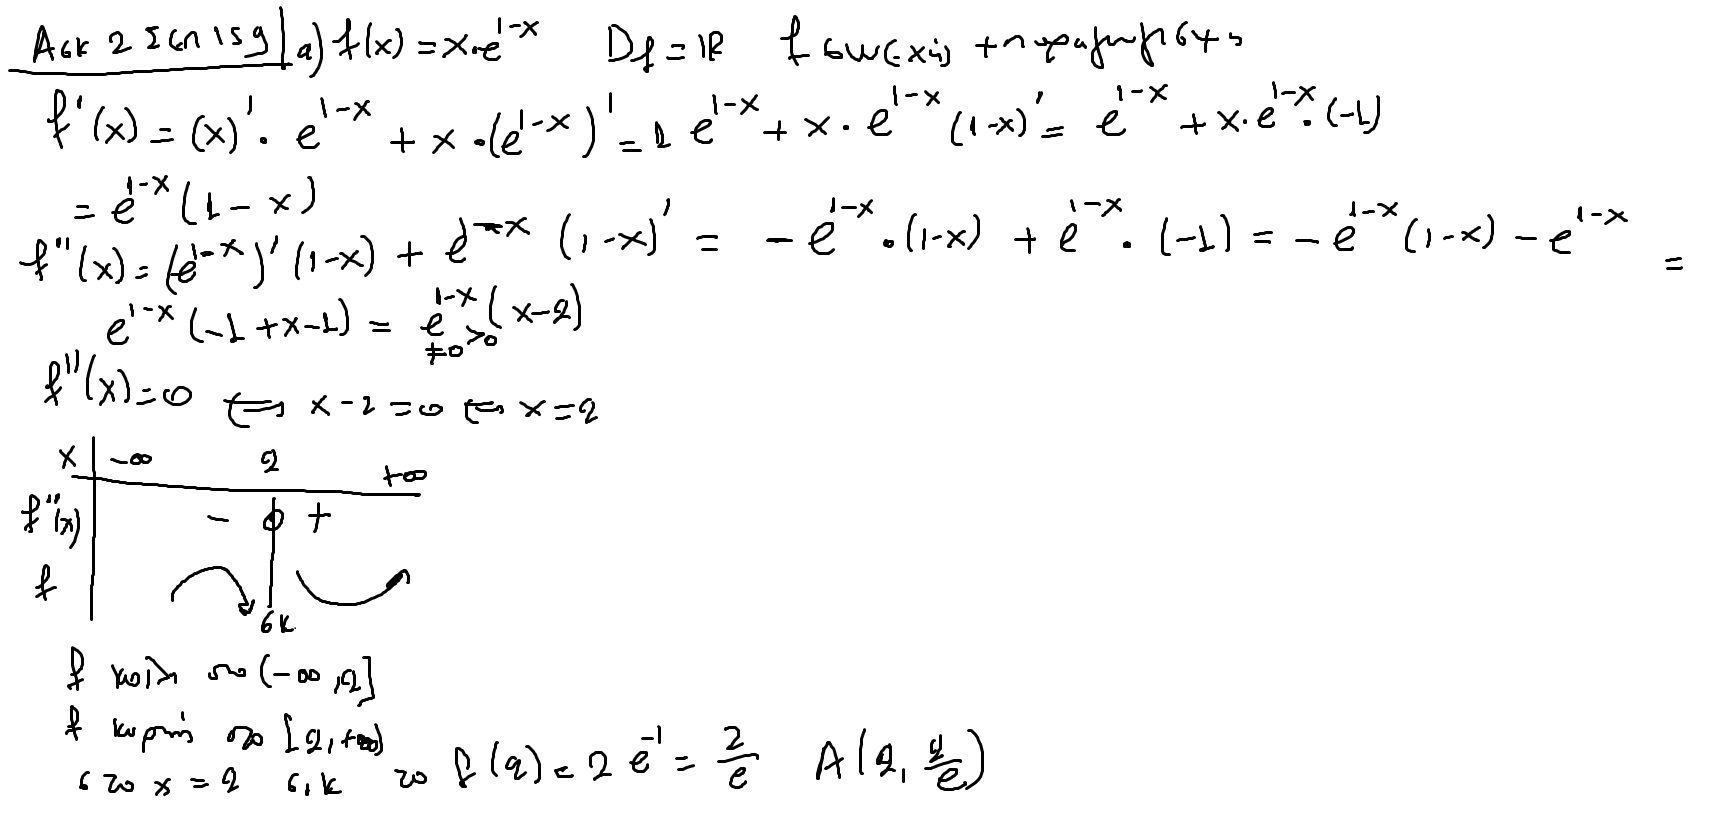 Ασκ 2 Σελ 159 α) f(x) = x·e^{1-x} D_f = ℝ f συνεχής + παραγωγίσιμη
f'(x) = (x)'· e^{1-x} + x·(e^{1-x})' = 1 e^{1-x} + x·e^{1-x} (1-x)' = e^{1-x} + x·e^{1-x}·(-1)
= e^{1-x} (1-x)
f''(x) = (e^{1-x})' (1-x) + e^{1-x} (1-x)' = -e^{1-x}·(1-x) + e^{1-x}·(-1) = -e^{1-x}(1-x) - e^{1-x} =
e^{1-x} (-1+x-1) = e^{1-x} (x-2)
≠0 >0
f''(x)=0 ⟺ x-2=0 ⟺ x=2
x -∞ 2 +∞
f''(x) - 0 +
f
σκ
f κοίλη στο (-∞,2]
f κυρτή στο [2,+∞)
στο x=2 σ.κ το f(2)=2 e^{-1} = 2/e A(2, 2/e)